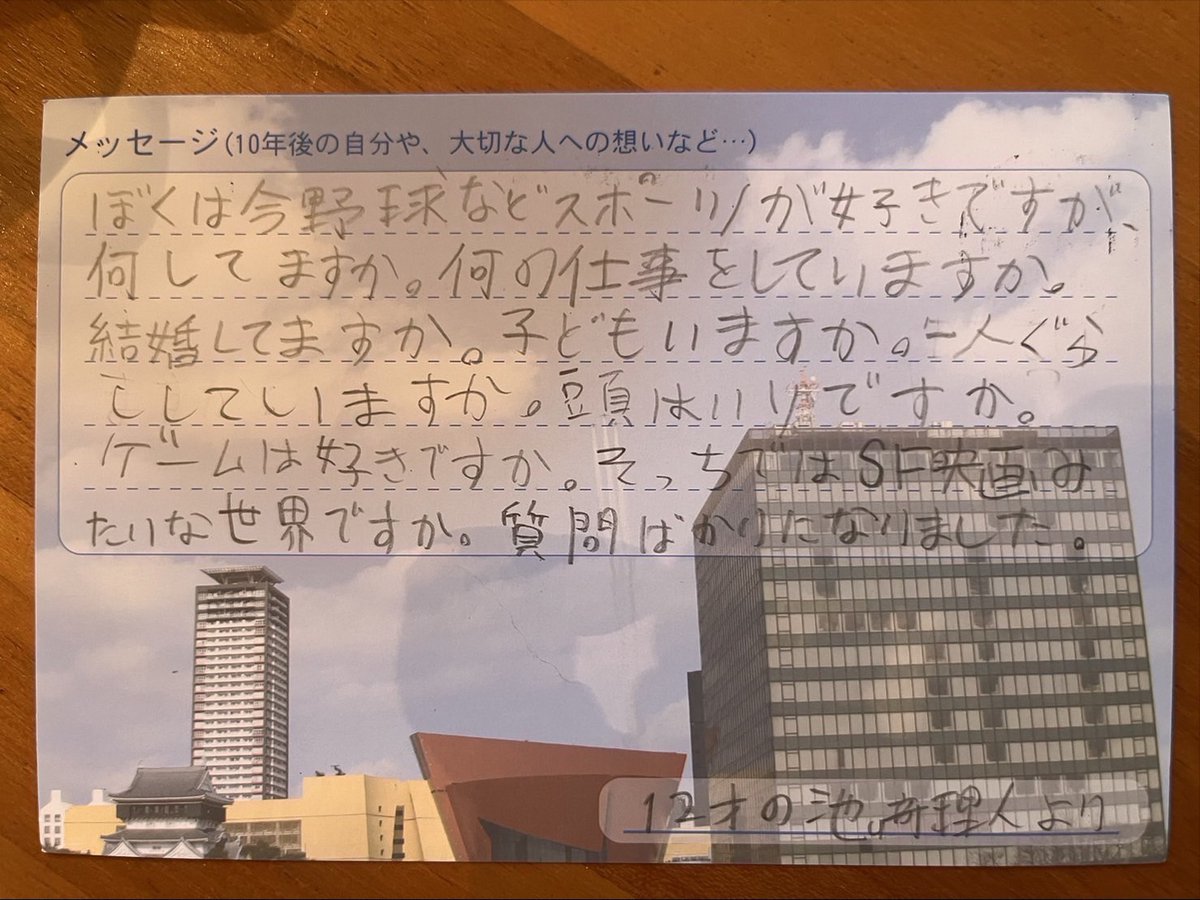 メッセージ(10年後の自分や、大切な人への想いなど…)
ぼくは今野球などスポーツが好きですが、
何してますか。何の仕事をしていますか。
結婚してますか。子どもいますか。一人ぐら
ししていますか。頭はいいですか。
ゲームは好きですか。そっちではSF映画み
たいな世界ですか。質問ばかりになりました。
12才の池﨑理人より